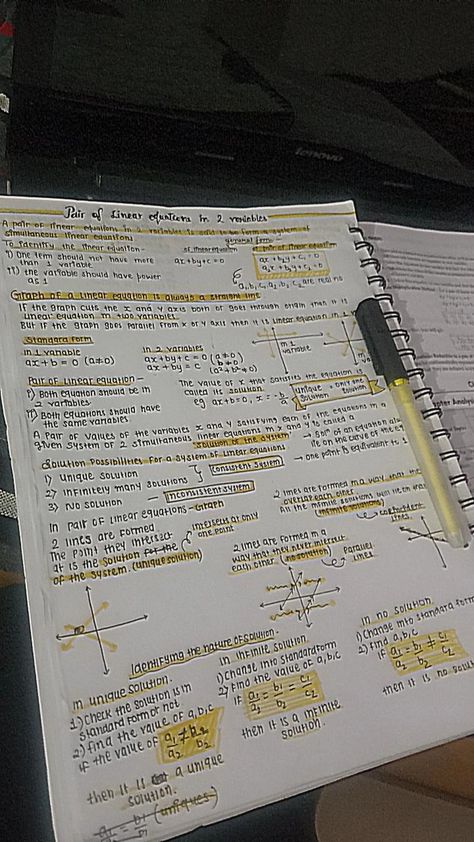 lenovo
Pair of Linear equations in 2 variables
A pair of linear equations in 2 variables is said to form a system of
simultaneous linear equations
To identify the linear equation -
general form -
of linear equation
of pair of linear equation
I) One term should not have more
than 1 variable
ax+by+c=0
a₁x+b₁y+c₁=0
a₂x+b₂y+c₂=0
II) the variable should have power
as 1
a₁b₁c₁a₂b₂c₂ are real no
Graph of a linear equation is always a straight line
If the graph cuts the x and y axis both or goes through origin then it is
linear equation in two variables.
But if the graph goes parallel from x or y axis then it is linear equation in 1
variable
Standard form
in 1 variable
ax+b=0 (a≠0)
in 2 variables
ax+by+c=0 (a≠0)
ax+by=c (b≠0)
(a²+b²≠0)
Pair of Linear equation -
I) Both equation should be in
2 variables.
II) Both equations should have
the same variables
The value of x that satisfies the equation is
called its solution
eg ax+b=0, x=-b/a
unique solution
only one solution
A Pair of values of the variables x and y satisfying each of the equations in a
given system of 2 simultaneous linear equations in x and y is called a
solution of the system
Solution Possibilities for a System of Linear Equations
1) unique solution
2) infinitely many solutions
} consistent system
3) No solution
- inconsistent system
one point is equivalent to 1
In pair of Linear equations - Graph
2 lines are formed
The point they intersect
at is the solution for the
of the system (unique solution)
intersects at only
one point
2 lines are formed in a
way that they never intersect
each other (no solution)
Parallel
lines
2 lines are formed in a way that the
overlap each other
(infinite solutions)
lines.
Identifying the nature of solution -
in unique solution.
1) Check the solution is in
standard form or not
2) find the value of a,b,c
if the value of a₁/a₂ ≠ b₁/b₂
then it is a unique
solution.
a₁/a₂ = b₁/b₁ (uniques)
in infinite solution
1) change into standard form
2) find the value of a,b,c
if a₁/a₂ = b₁/b₂ = c₁/c₂
then it is a infinite
solution.
in no solution
1) change into standard form
2) find a,b,c
if a₁/a₂ = b₁/b₂ ≠ c₁/c₂
then it is no